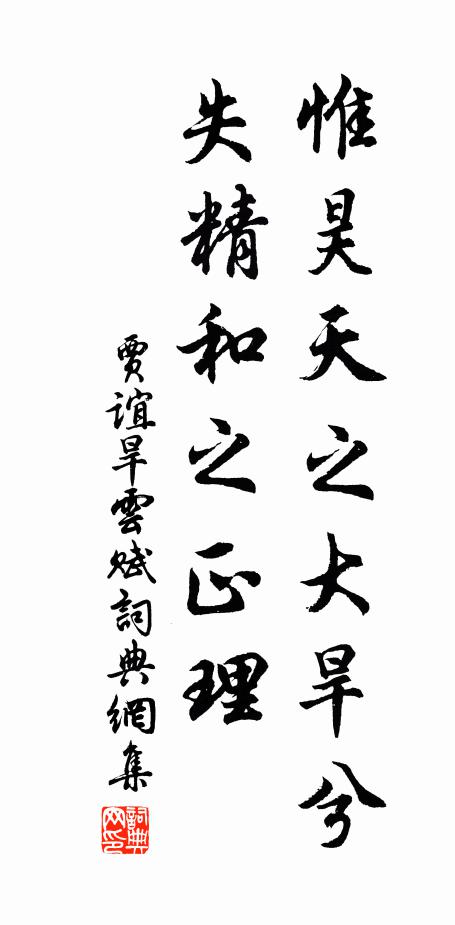 惟昊天之大旱兮
失精和之正理
賈誼旱雲賦詞典網集
詞典网印